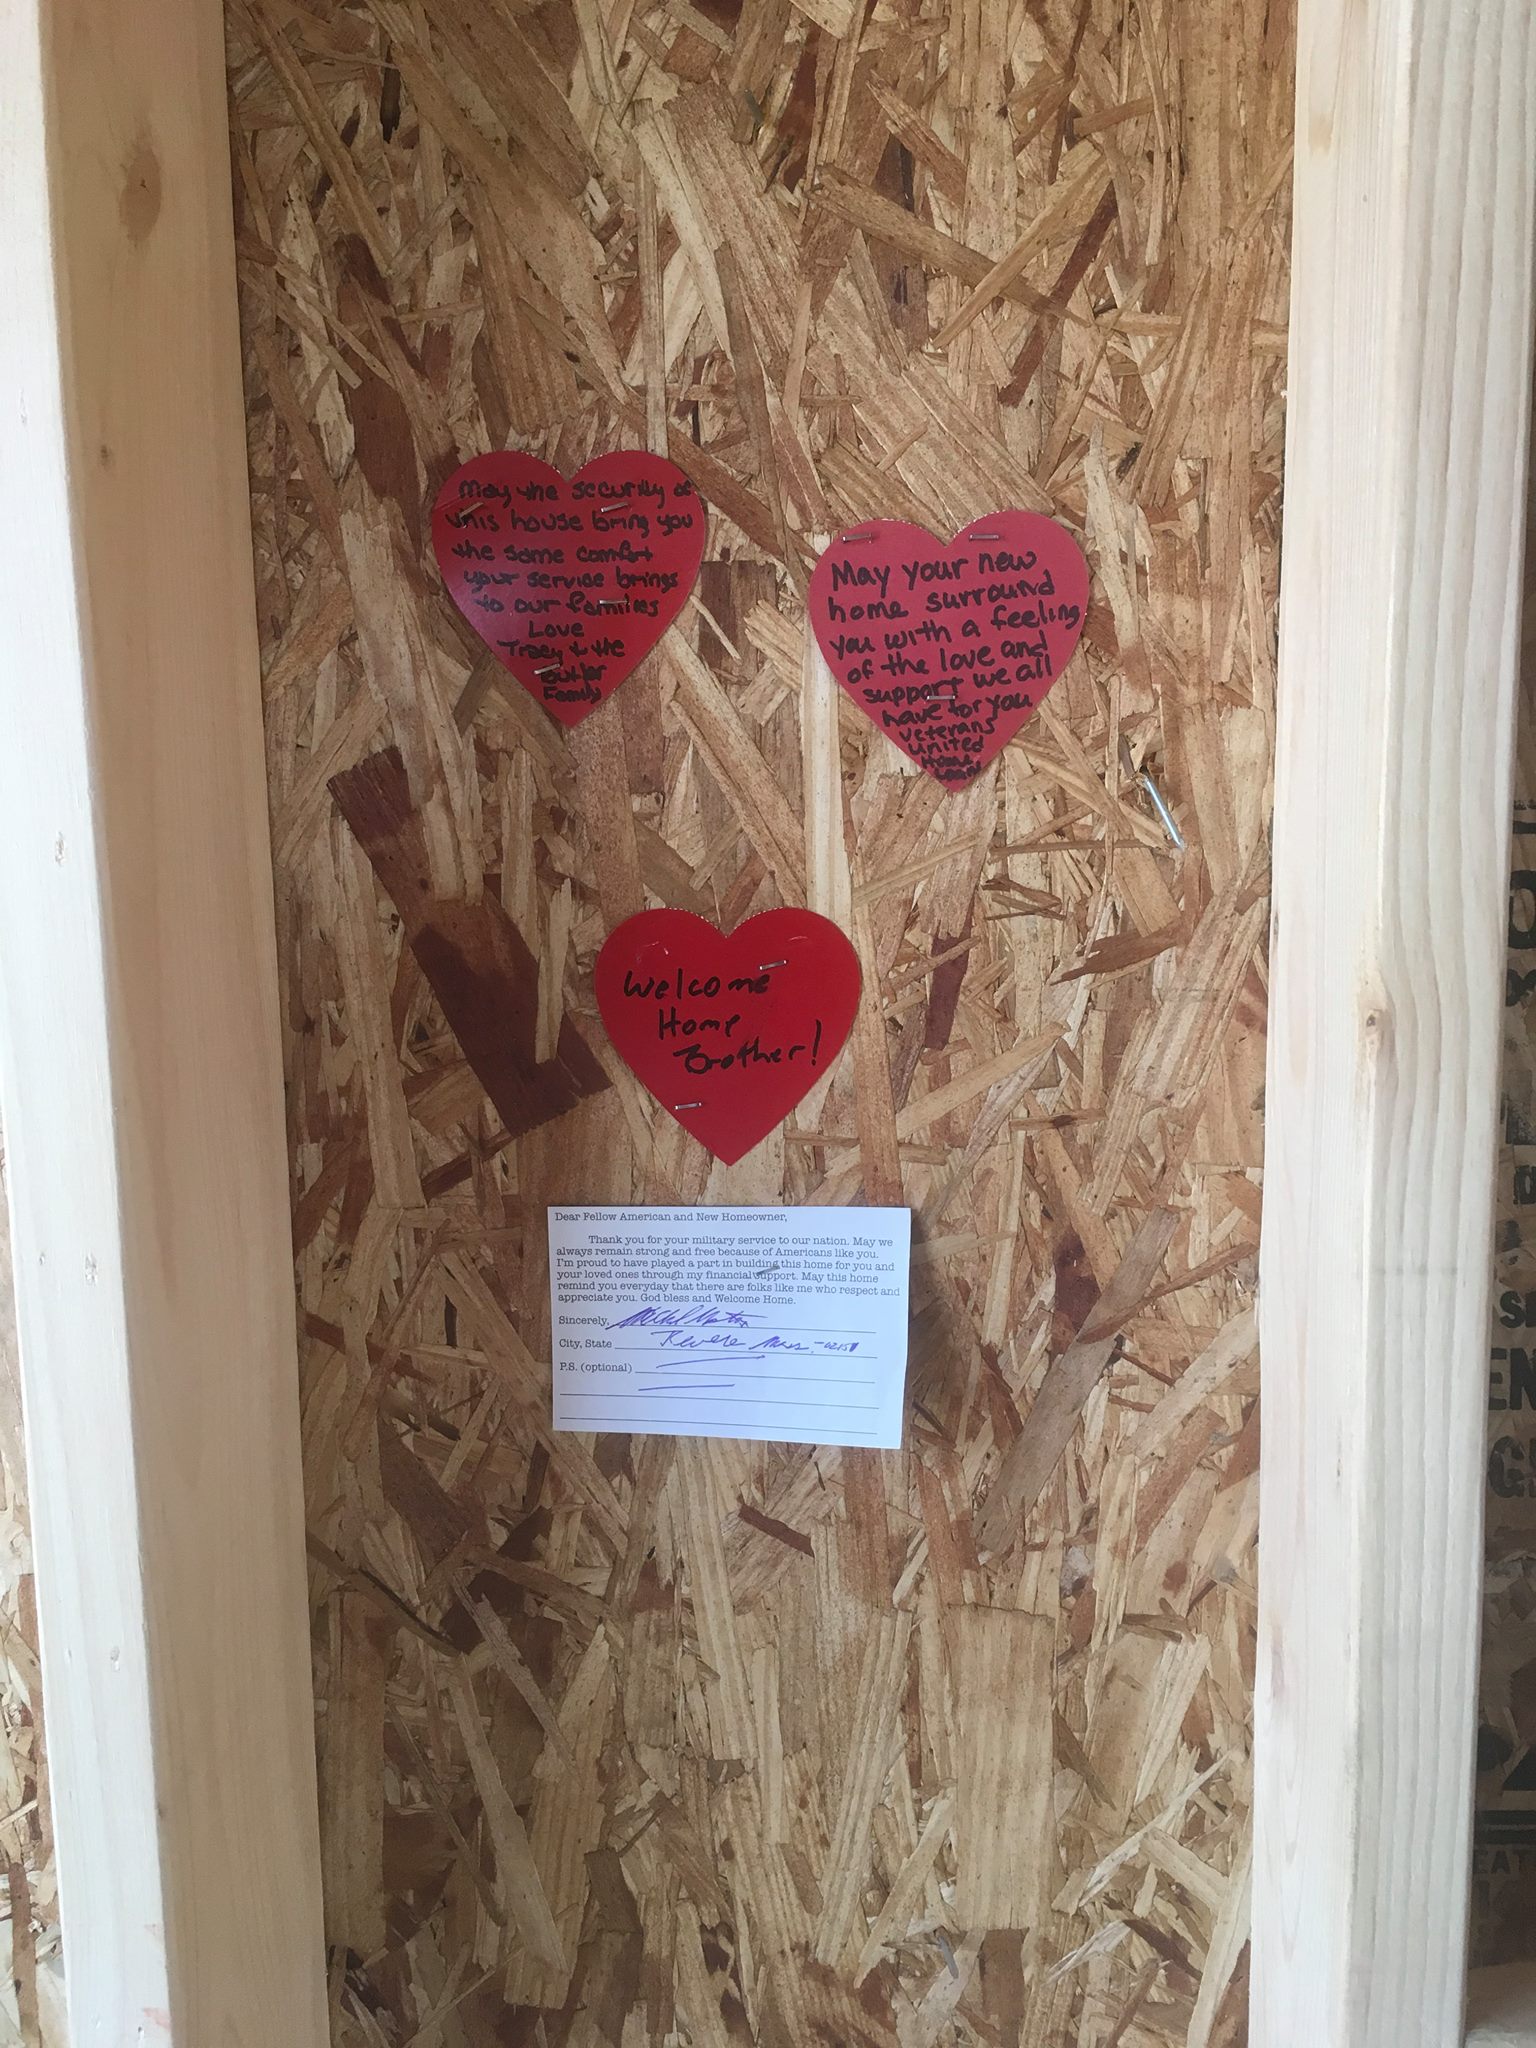 May the security of
this house bring you
the same comfort
your service brings
to our families
Love
Tracy & the
Butler
Family
May your new
home surround
you with a feeling
of the love and
support we all
have for you
veterans
united
Home
Loans
Welcome
Home
Brother!
Dear Fellow American and New Homeowner,
Thank you for your military service to our nation. May we
always remain strong and free because of Americans like you.
I'm proud to have played a part in building this home for you and
your loved ones through my financial support. May this home
remind you everyday that there are folks like me who respect and
appreciate you. God bless and Welcome Home.
Sincerely,
City, State Revere Mass, -02151
P.S. (optional)